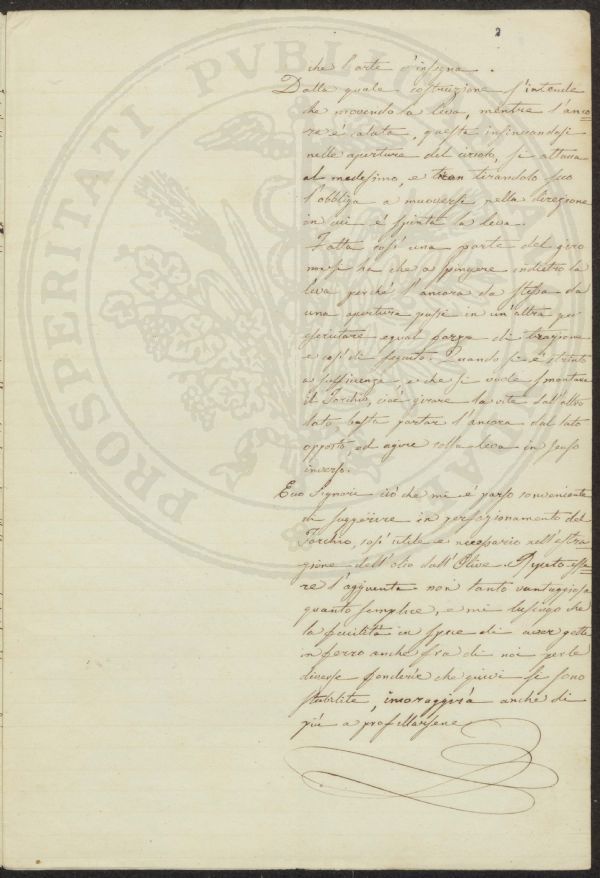 2
che l'arte c'insegna.
Dalla quale costruzione s'intende
che movendo la leva, mentre l'anco=
ra è calata, questa insinuandosi
nelle aperture del circolo, si attacca
al medesimo, e tirandolo seco
l'obbliga a muoversi nella direzione
in cui è spinta la leva.
Fatta così una parte del giro
non si ha che a spingere indietro la
leva perchè l'ancora da stessa da
una apertura passi in un'altra per
esercitare egual forza di trazione
e così di seguito. Quando si è stretto
a sufficienza, e che si vuole smontare
il Torchio, cioè girare la vite dall'altro
lato basta portar l'ancora dal lato
opposto, ed agire colla leva in senso
inverso.
Ecco Signori ciò che mi è parso conveniente
di suggerire in perfezionamento del
Torchio, così utile e necessario nell'estra=
zione dell'olio dall'Olive. Reputo esse=
re l'aggiunta non tanto vantaggiosa
quanto semplice, e mi lusingo che
la facilità in specie di aver getti
in ferro anche fra di noi per le
diverse fonderie che quivi si sono
stabilite, incoraggirà anche di
più a profittarsene
PROSPERITATI PUBLICAE